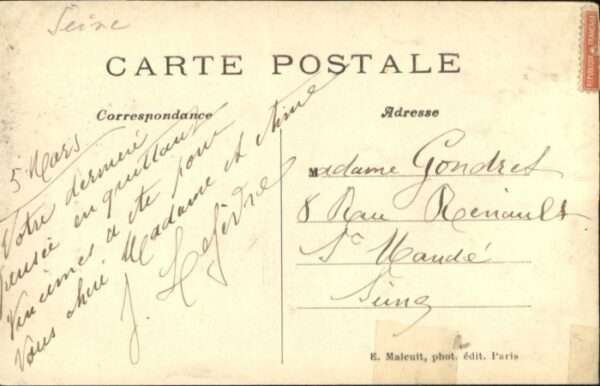 Seine
CARTE POSTALE
Correspondance
5 Mars
Votre dernière
pensée en quittant
Vincennes a été pour
Vous chère Madame et Amie
J. Lefèvre
Adresse
Madame Gondret
8 Rue Renault
St Mandé
Seine
E. Malcuit, phot. édit. Paris
REPUBLIQUE FRANCAISE